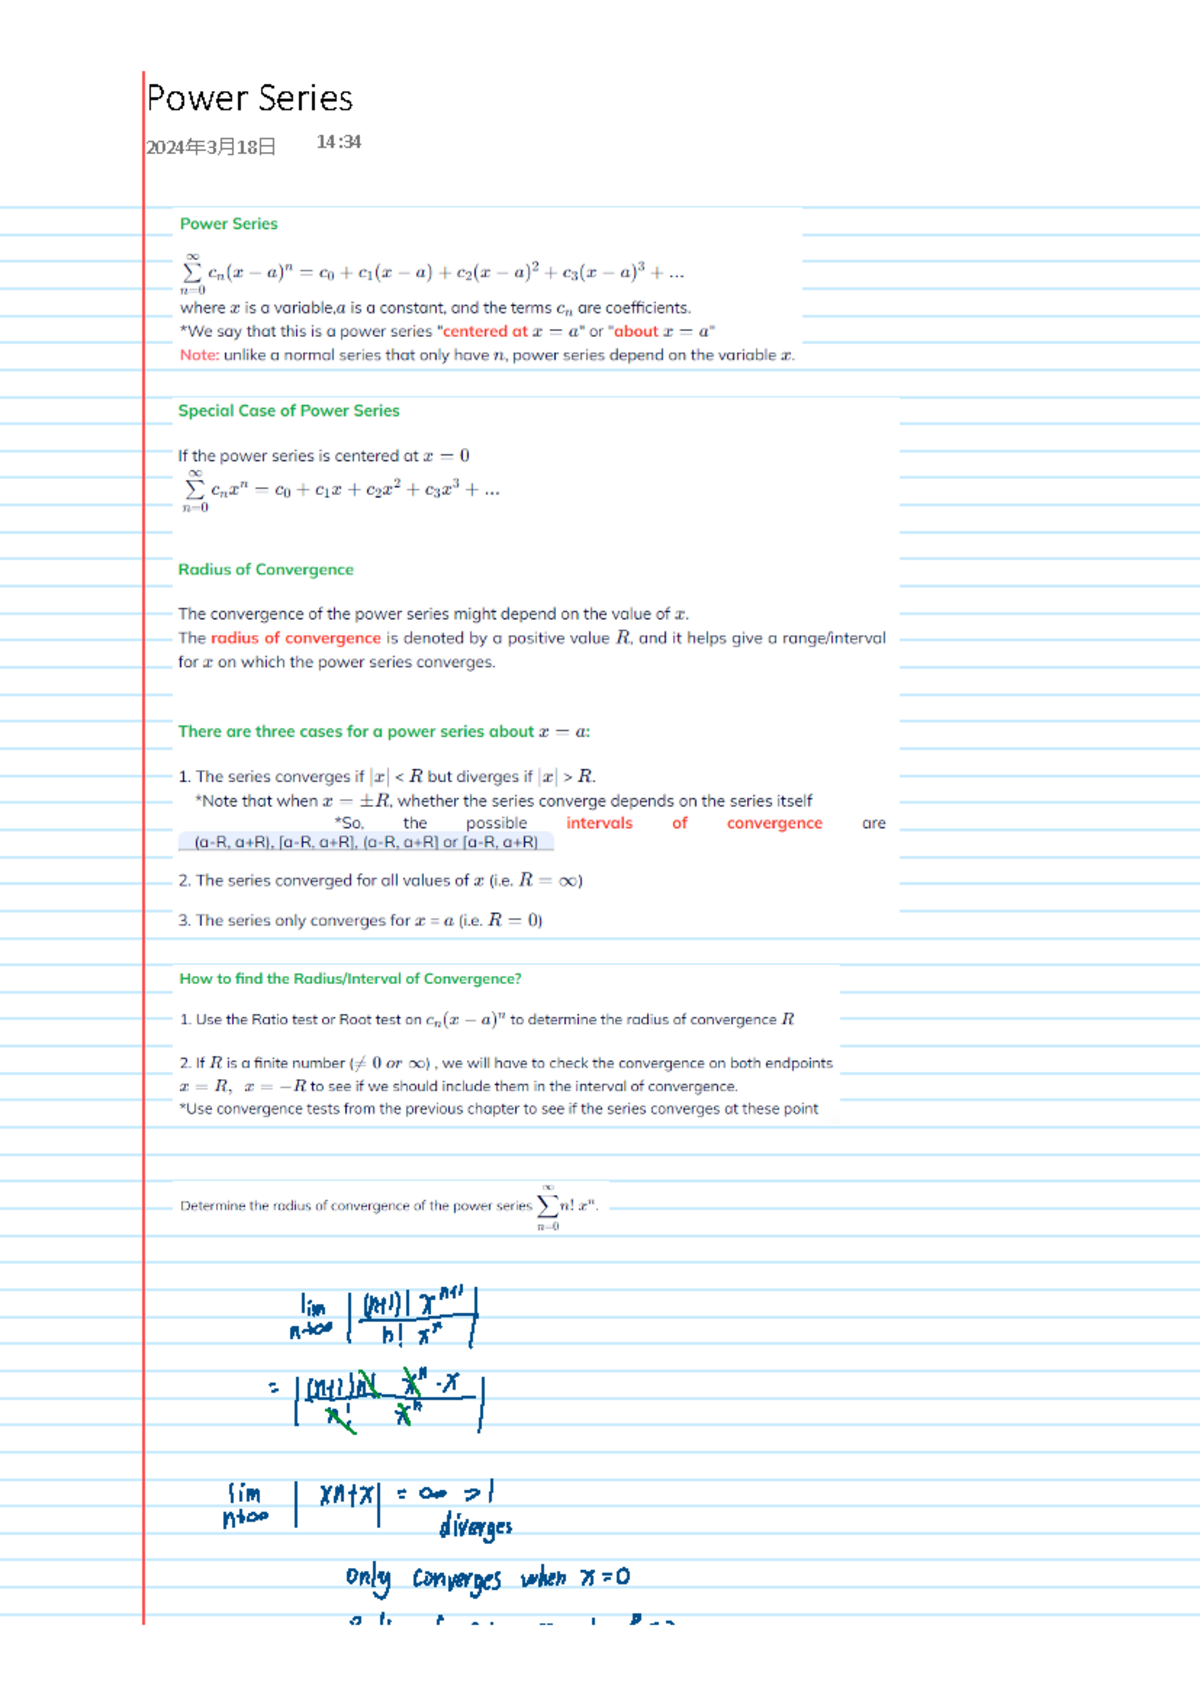 Power Series
2024年3月18日 14:34
Power Series
∞
∑ cₙ(x − a)ⁿ = c₀ + c₁(x − a) + c₂(x − a)² + c₃(x − a)³ + ...
n=0
where x is a variable,a is a constant, and the terms cₙ are coefficients.
*We say that this is a power series "centered at x = a" or "about x = a"
Note: unlike a normal series that only have n, power series depend on the variable x.
Special Case of Power Series
If the power series is centered at x = 0
∞
∑ cₙxⁿ = c₀ + c₁x + c₂x² + c₃x³ + ...
n=0
Radius of Convergence
The convergence of the power series might depend on the value of x.
The radius of convergence is denoted by a positive value R, and it helps give a range/interval
for x on which the power series converges.
There are three cases for a power series about x = a:
1. The series converges if |x| < R but diverges if |x| > R.
*Note that when x = ±R, whether the series converge depends on the series itself
*So, the possible intervals of convergence are
(a-R, a+R), [a-R, a+R], (a-R, a+R] or [a-R, a+R)
2. The series converged for all values of x (i.e. R = ∞)
3. The series only converges for x = a (i.e. R = 0)
How to find the Radius/Interval of Convergence?
1. Use the Ratio test or Root test on cₙ(x − a)ⁿ to determine the radius of convergence R
2. If R is a finite number (≠ 0 or ∞) , we will have to check the convergence on both endpoints
x = R, x = −R to see if we should include them in the interval of convergence.
*Use convergence tests from the previous chapter to see if the series converges at these point
∞
Determine the radius of convergence of the power series ∑ n! xⁿ.
n=0
lim n→∞ | (n+1)! xⁿ⁺¹ / n! xⁿ |
= | (n+1)n! xⁿ·x / n! xⁿ |
lim n→∞ | xn+x | = ∞ >1
diverges
only converges when x=0